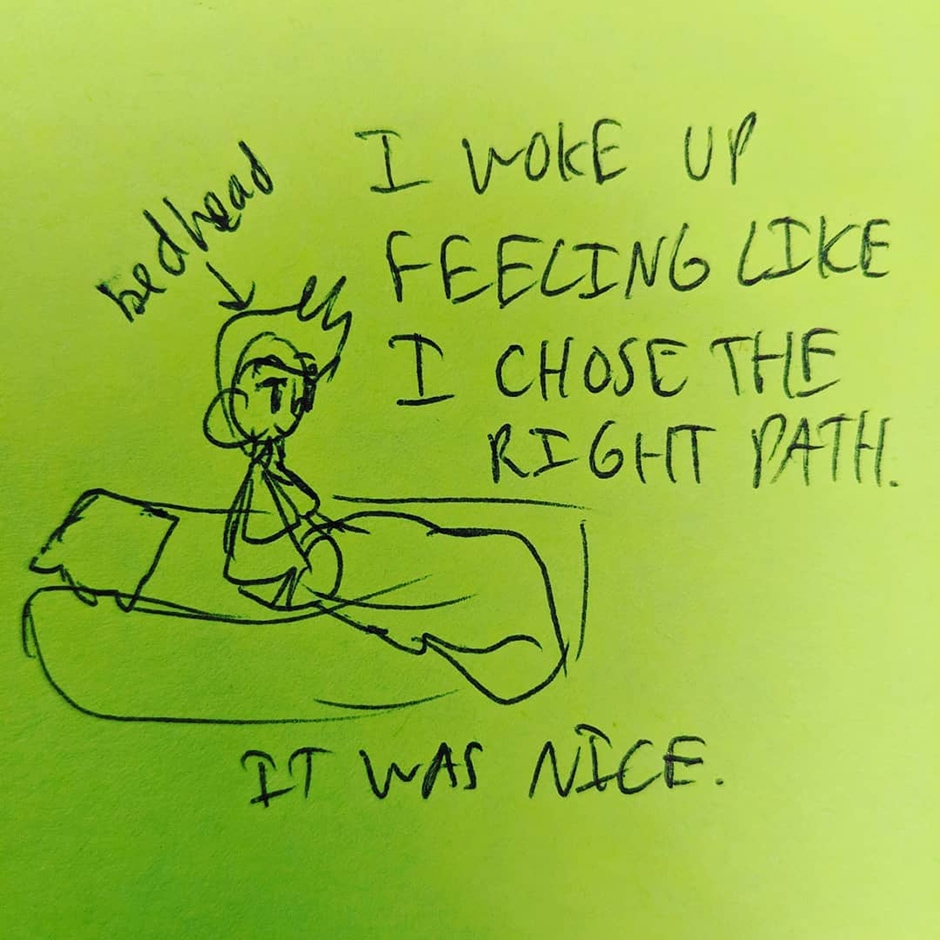 bedhead
I WOKE UP
FEELING LIKE
I CHOSE THE
RIGHT PATH.
IT WAS NICE.